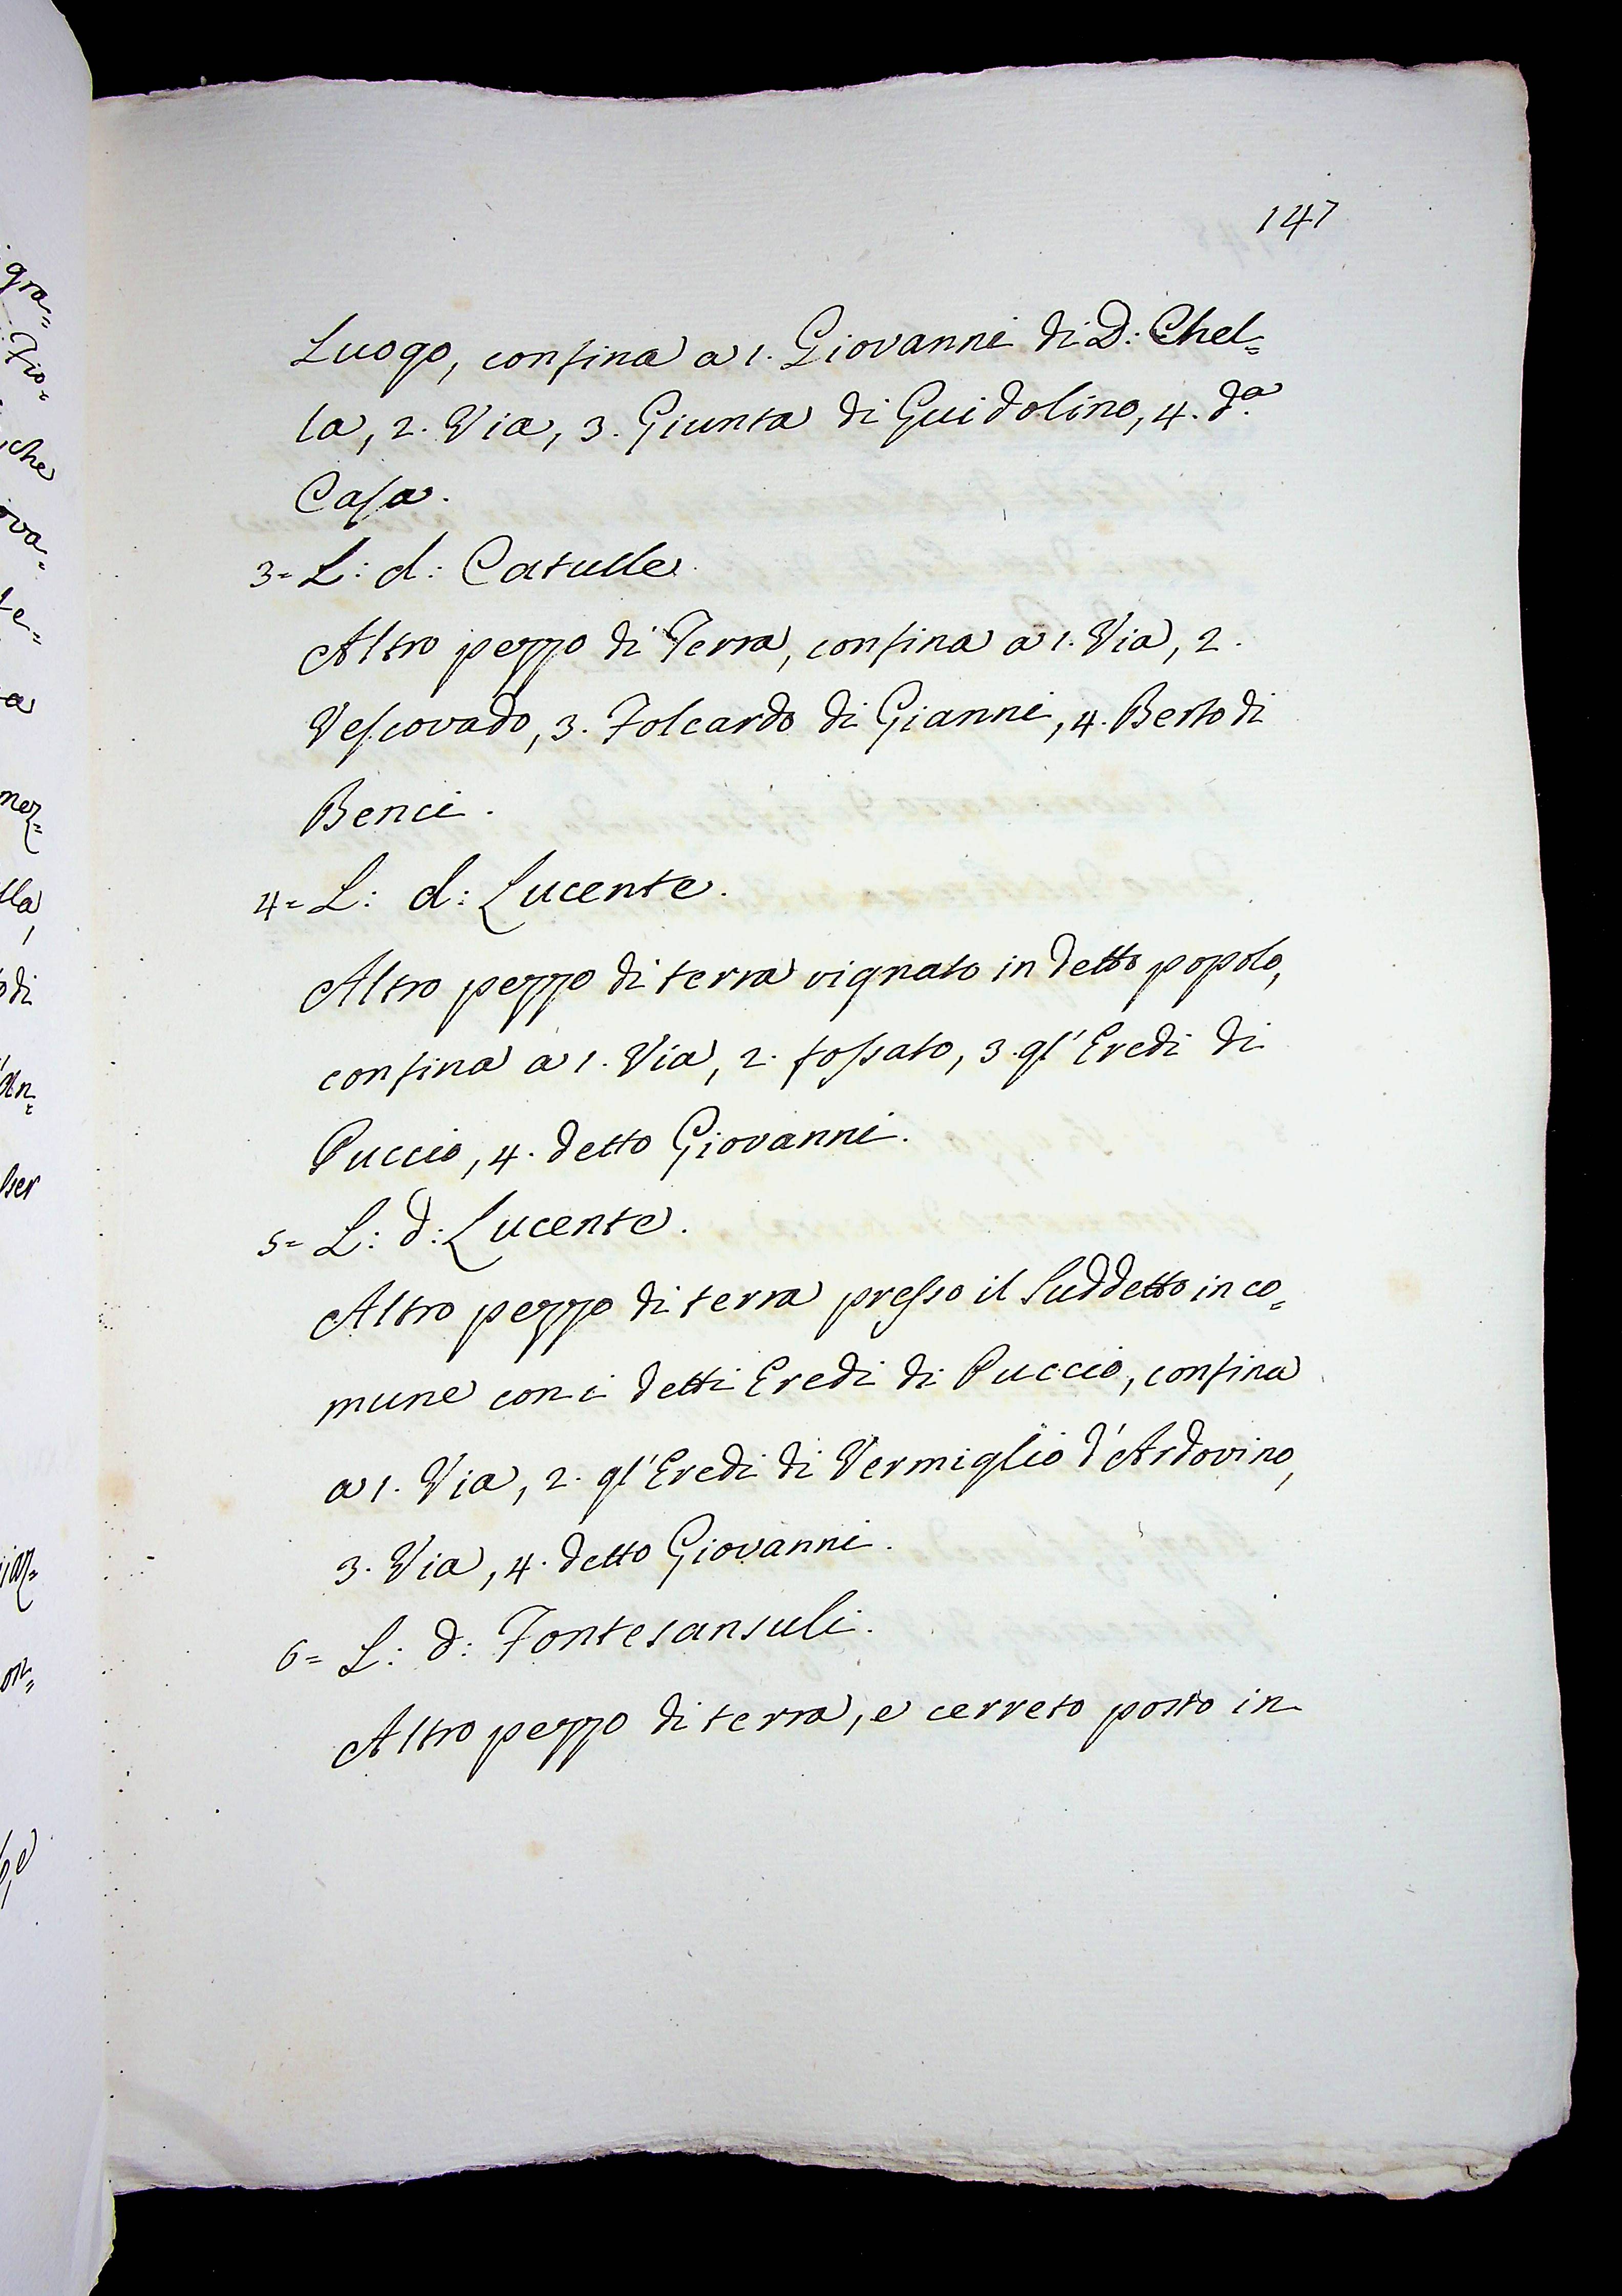 147
Luogo, confina a 1. Giovanni di D: Chel=
la, 2. Via, 3. Giunta di Guidolino, 4. d.ª
Casa.
3= L: d: Catulle.
Altro pezzo di Terra, confina a 1. Via, 2.
Vescovado, 3. Folcardo di Gianni, 4. Berto di
Benci.
4= L: d: Lucente.
Altro pezzo di terra vignato in detto popolo,
confina a 1. Via, 2. fossato, 3. gl'Eredi di
Puccio, 4. detto Giovanni.
5= L: d: Lucente.
Altro pezzo di terra presso il Suddetto in co=
mune con i detti Eredi di Puccio, confina
a 1. Via, 2. gl'Eredi di Vermiglio d'Ardovino,
3. Via, 4. detto Giovanni.
6= L: d: Fontesansuli.
Altro pezzo di terra, e cerreto posto in